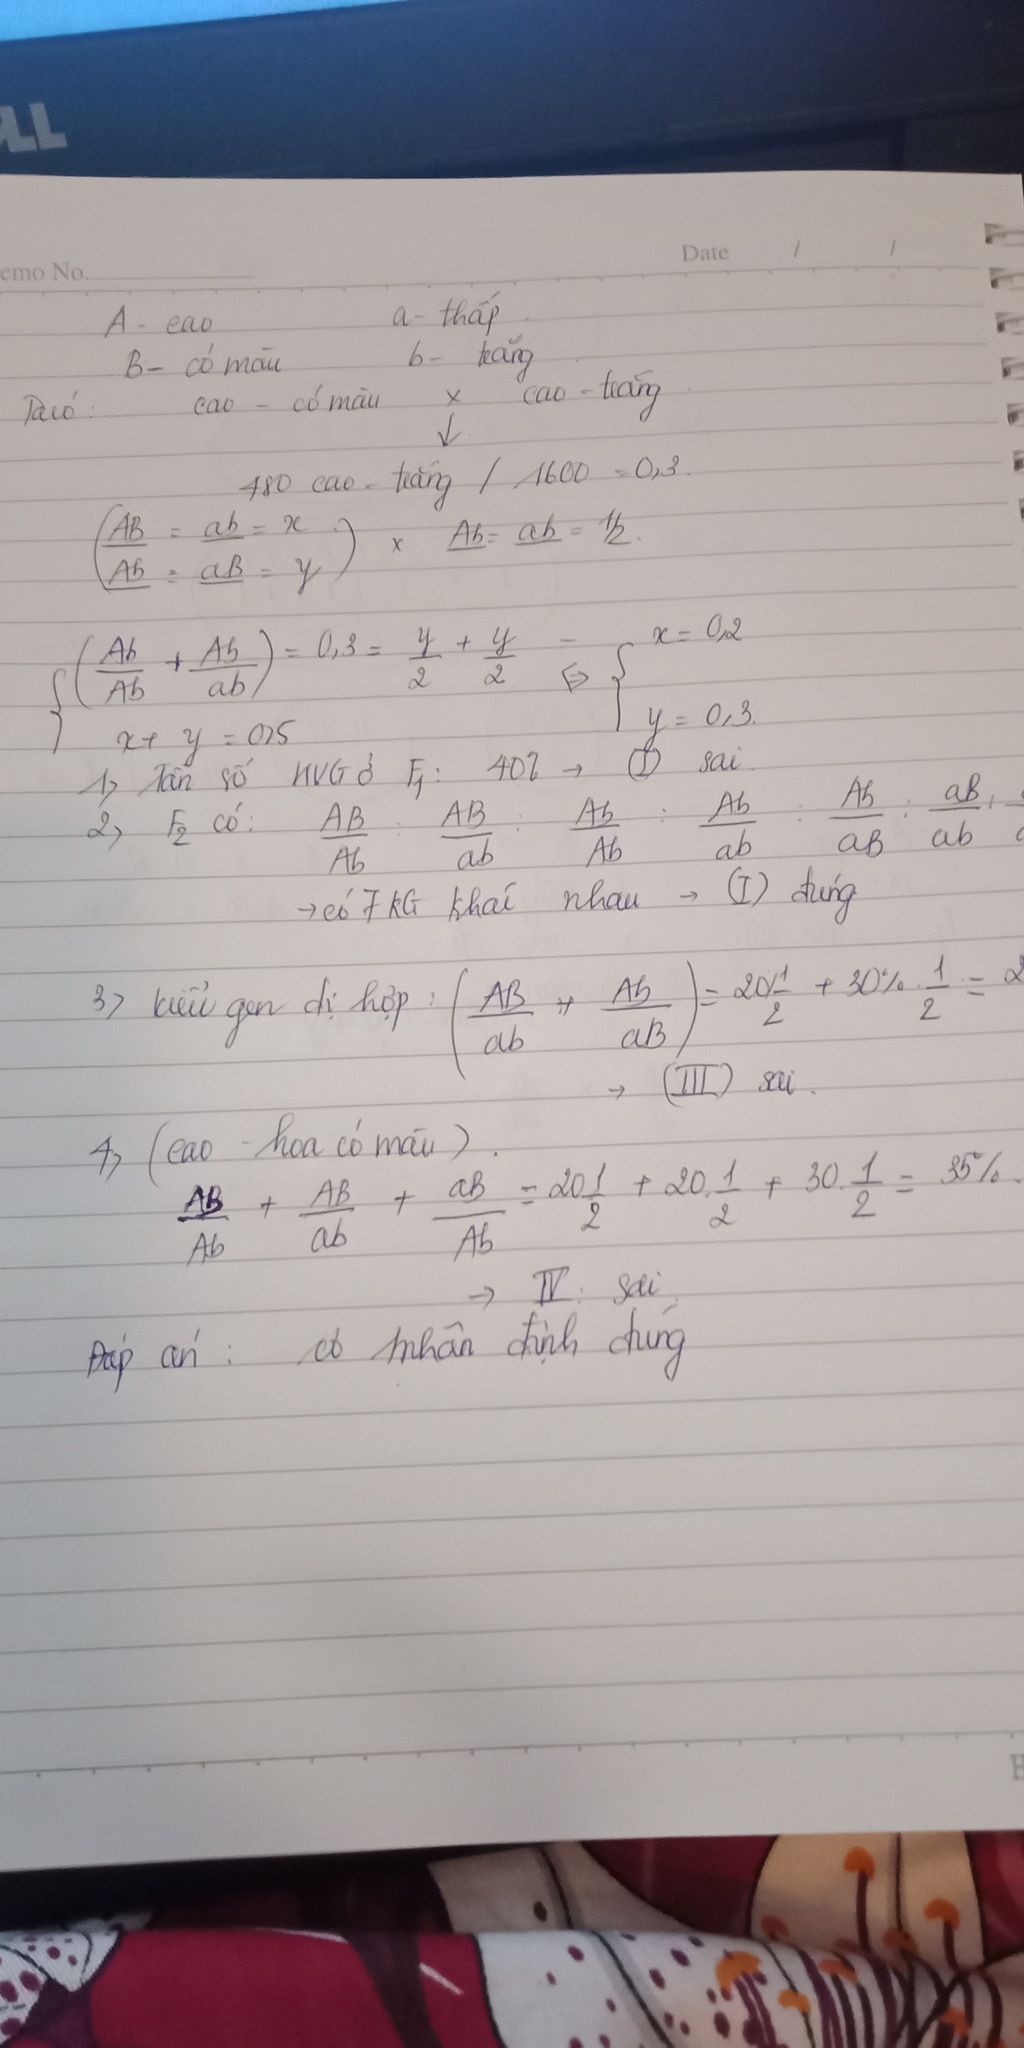 LL
emo No.
Date / /
A - cao a - thấp
B - có màu b - trắng
Ta có: cao - có màu x cao - trắng
↓
480 cao - trắng / 1600 = 0,3
(AB = ab = x
Ab = aB = y) x Ab = ab = 1/2
{(Ab/Ab + Ab/ab) = 0,3 = y/2 + y/2 ⇒ {x = 0,2
x + y = 0,5 y = 0,3
1, Tần số HVG ở F1: 40% → (I) sai
2, F2 có: AB/Ab : AB/ab : Ab/Ab : Ab/ab : Ab/aB : aB/ab :
→ có 7 KG khác nhau → (I) đúng
3, kiểu gen dị hợp: (AB/ab + Ab/aB) = 20.1/2 + 30%.1/2 = 2
→ (III) sai.
4, (cao - hoa có màu).
AB/Ab + AB/ab + aB/Ab = 20.1/2 + 20.1/2 + 30.1/2 = 35%.
→ IV: sai
Đáp án: có 1 nhận định đúng